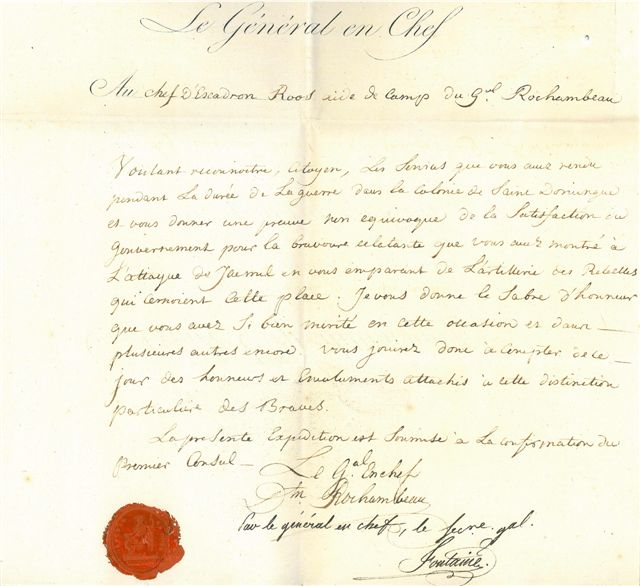 Le Général en Chef
Au chef D'Escadron Roos aide de Camp du Gal Rochambeau
Voulant reconnoitre, Citoyen, Les Services que vous avez rendu
pendant La durée de La guerre dans la Colonie de Saint Domingue
et vous donner une preuve non equivoque de la Satisfaction du
Gouvernement pour la bravoure éclatante que vous avez montré à
L'attaque de Jacmel en vous emparant de L'artillerie des Rebelles
qui cernoient cette place. Je vous donne le Sabre d'honneur
que vous avez Si bien merité en cette occasion et dans
plusieurs autres encore. vous jouirez donc à Compter de ce
jour des honneurs et Emoluments attachés à cette distinction
particuliere des Braves.
La presente Expedition est Soumise à La confirmation du
Premier Consul
Le Gal Enchef
Rochambeau
Par le général en chef, le secre. gal.
Fontaine